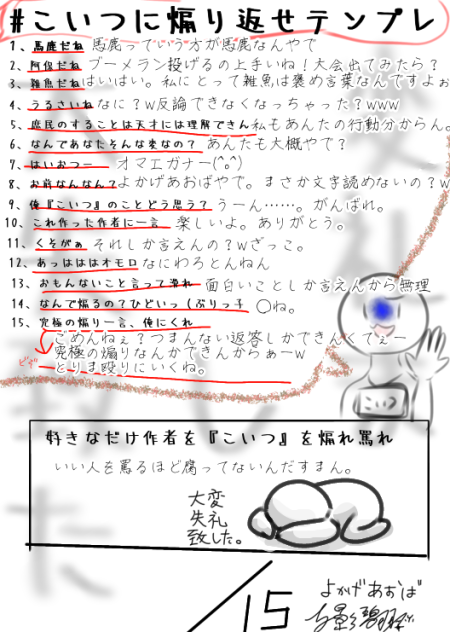 #こいつに煽り返せテンプレ
1、馬鹿だね 馬鹿っていう方が馬鹿なんやで
2、阿保だね ブーメラン投げるの上手いね！大会出てみたら？
3、雑魚だね はいはい。私にとって雑魚は褒め言葉なんですよぉ
4、うるさいね なに？w反論できなくなっちゃった？www
5、庶民のすることは天才には理解できん 私もあんたの行動分からん。
6、なんであなたそんな変なの？ あんたも大概やで？
7、はいおつー オマエガナー(^o^)
8、お前なんなん？ よかげあおばやで。まさか文字読めないの？w
9、俺『こいつ』のことどう思う？ うーん……。がんばれ。
10、これ作った作者に一言 楽しいよ。ありがとう。
11、くそがぁ それしか言えんの？wざっこ。
12、あっはははオモロ なにわろとんねん
13、おもんないこと言って滑れ 面白いことしか言えんから無理
14、なんで煽るの？ひどいっ（ぶりっ子 〇ね。
15、究極の煽り一言、俺にくれ
ごめんねぇ？つまんない返答しかできんくてぇー
究極の煽りなんかできんからぁーw
とりま殴りにいくね。
こいつ
好きなだけ作者を『こいつ』を煽れ罵れ
いい人を罵るほど腐ってないんだすまん。
大変
失礼
致した。
/15
よかげあおば